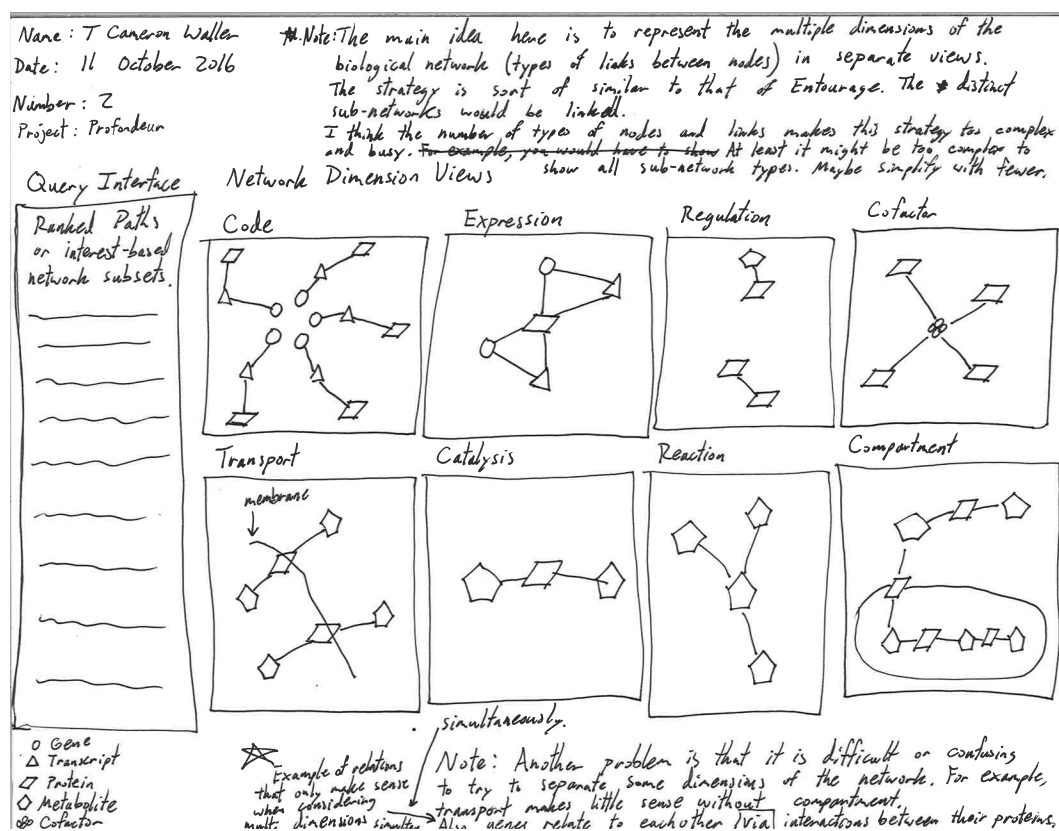 Name: T Cameron Waller
Date: 11 October 2016
Number: 2
Project: Profondeur
*Note: The main idea here is to represent the multiple dimensions of the
biological network (types of links between nodes) in separate views.
The strategy is sort of similar to that of Entourage. The distinct
sub-networks would be linked.
I think the number of types of nodes and links makes this strategy too complex
and busy. For example, you would have to show At least it might be too complex to
show all sub-network types. Maybe simplify with fewer.
Query Interface
Ranked Paths
or interest-based
network subsets.
Network Dimension Views
Code
Expression
Regulation
Cofactor
Transport
Catalysis
Reaction
Compartment
membrane
Gene
Transcript
Protein
Metabolite
Cofactor
Example of relations
that only make sense
when considering
multi dimensions simultan
simultaneously.
Note: Another problem is that it is difficult or confusing
to try to separate some dimensions of the network. For example,
transport makes little sense without compartment.
Also genes relate to eachother via interactions between their proteins,